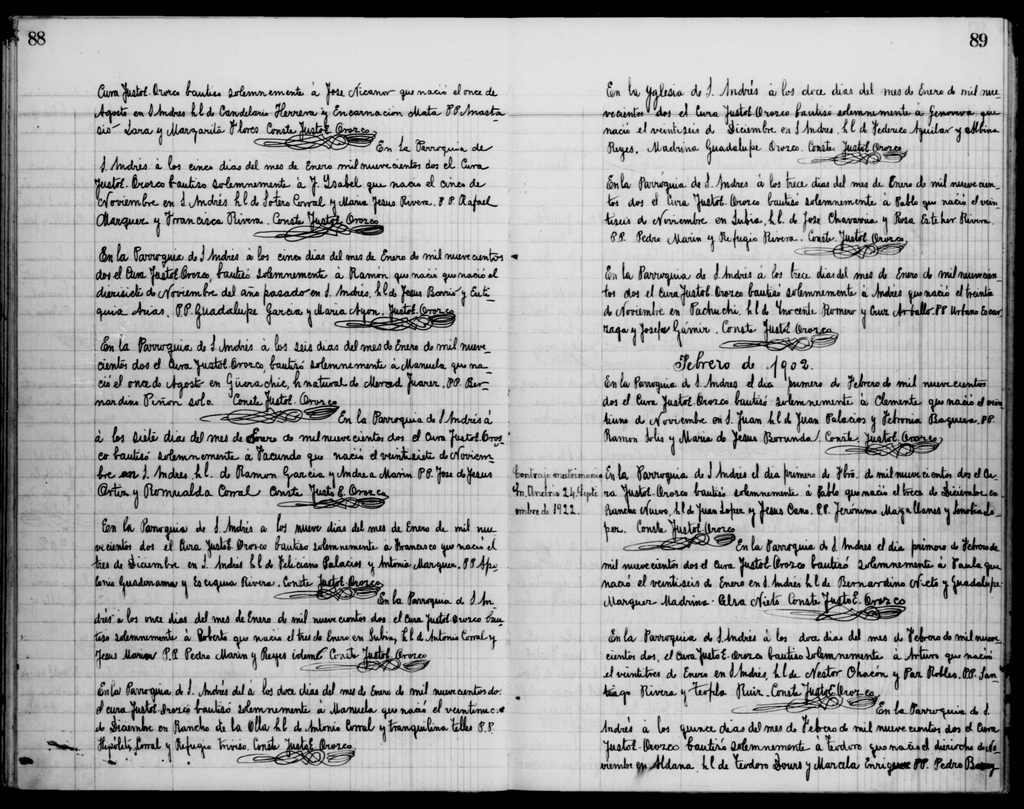 88
Cura Justo E. Orozco bautiso solemnemente à Jose Nicanor que nació el once de
Agosto en S Andres h l d Candelario Herrera y Encarnacion Mata. PP. Anasta
sio Lara y Margarita Flores Conste Justo E. Orozco
En la Parroquia de
S. Andrés à los cinco dias del mes de Enero mil nuevecientos dos el Cura
Justo E. Orozco bautiso solemnemente à J. Ysabel que nacio el cinco de
Noviembre en S. Andrés h l d Sotero Corral y Maria Jesus Rivera. P P Rafael
Marquez y Francisca Rivera. Conste Justo E. Orozco
En la Parroquia de S Andrés à los cinco dias del mes de Enero de mil nuevecientos
dos el Cura Justo E. Orozco, bautisó solemnemente à Ramón que nació que nació el
diesisiete de Noviembre del año pasado en S. Andrés, h l d Jesus Barrio y Euti
quia Arias. P.P. Guadalupe Garcia y Maria Ayon. Justo E. Orozco
En la Parroquia de S Andrés à los seis dias del mes de Enero de mil nueve
cientos dos el Cura Justo E. Orozco, bautisó solemnemente à Manuela que na
ció el once de Agosto en Güerachic, h natural de Merced Juarez. P.P. Ber
nardino Piñon solo. Conste Justo E. Orozco
En la Parroquia de S Andrés á
à los siete dias del mes de Enero de mil nuevecientos dos el Cura Justo E. Oroz
co bautisó solemnemente à Facundo que nació el veintisiete de Noviem
bre en S. Andres, h. l. de Ramon Garcia y Andrea Marin. P.P. Jose de Jesus
y Romualda Corral Conste Justo E. Orozco
En la Parroquia de S. Andrés a los nueve dias del mes de Enero de mil nue
vecientos dos el Cura Justo E. Orozco bautiso solemnemente à Francisco que nació el
tres de Diciembre en S. Andrés h l d Feliciano Palacios y Antonia Marquez. P.P. Apo
lonio Guaderama y Esiquia Rivera. Conste Justo E. Orozco
En la Parroquia de S An
drés a los once dias del mes de Enero de mil nuevecientos dos el Cura Justo E. Orozco bau
tiso solemnemente à Roberto que nacio el tres de Enero en Subia, h l d Antonio Corral y
Jesus Marin P.P. Pedro Marin y Reyes idem Conste Justo E. Orozco
En la Parroquia de S. Andrés del a los doce dias del mes de Enero de mil nuevecientos dos
el cura Justo E. Orozco bautisó solemnemente à Manuela que nació el veintinueve
de Diciembre en Rancho de la Olla h l d Antonio Corral y Tranquilina telles P.P.
Hipólito Corral y Refugio Conste Justo E. Orozco
89
En la Yglesia de S. Andrés à los doce dias del mes de Enero de mil nue
vecientos dos el Cura Justo E. Orozco bautisó solemnemente à Genoveva que
nació el veintiseis de Diciembre en S Andres. h l d Federico Aguilar y Albina
Reyes. Madrina Guadalupe Orozco. Conste Justo E. Orozco
En la Parroquia de S. Andrés à los trece dias del mes de Enero de mil nuevecien
tos dos el Cura Justo E. Orozco bautisó solemnemente à Pablo que nació el vein
tiseis de Noviembre en Subia, h. l. de Jose Chavarria y Rosa Esteher Rivera.
P.P. Pedro Marin y Refugio Rivera. Conste Justo E. Orozco
En la Parroquia de S Andrés à los trece dias del mes de Enero de mil nuevecien
tos dos el Cura Justo E. Orozco bautisó solemnemente à Andrés que nació el treinta
de Noviembre en Pachuchi, h l d Ynocente Romero y Cruz Arballo. PP Urbano Escar
zaga y Josefa Conste Justo E. Orozco
Febrero de 1902.
En la Parroquia de S Andrés el dia primero de Febrero de mil nuevecientos
dos el Cura Justo E. Orozco bautisó solemnemente à Clemente que nació el vein
tiuno de Noviembre en S. Juan h l d Juan Palacios y Petronia Baquera. P.P.
Ramon Solis y Maria de Jesus Borunda Conste Justo E. Orozco
Contrajo matrimonio
24. Septi
embre de 1922.
En la Parroquia de S Andrés el dia primero de Fbró. de mil nuevecientos dos el Cu
ra Justo E. Orozco bautisó solemnemente à Pablo que nació el trece de Diciembre en
Rancho Nuevo, h l d Juan Lopez y Jesus Cano. P.P. Jerónimo Magallanes y Lo
pez. Conste Justo E. Orozco
En la Parroquia de S. Andrés el dia primero de Febrero de
mil nuevecientos dos el Cura Justo E. Orozco bautisó solemnemente à Paula que
nació el veintiseis de Enero en S. Andrés h l d Bernardino Nieto y Guadalupe
Marquez Madrina. Celsa Nieto Conste Justo E. Orozco
En la Parroquia de S. Andrés à los doce dias del mes de Febrero de mil nueve
cientos dos, el Cura Justo E. Orozco bautiso Solemnemente à Arturo que nació
el veintitres de Enero en S Andrés, h l d Nestor Chacón y Paz Robles. P.P. San
tiago Rivera y teofla Ruiz. Conste Justo E. Orozco
En la Parroquia de S.
Andrés a los quince dias del mes de Febrero de mil nuevecientos dos el Cura
Justo E. Orozco bautisó solemnemente à Teodoro que nació el dieziocho de No
viembre en Aldana, h l de Teodoro Dours y Marcela Enriquez PP. Pedro